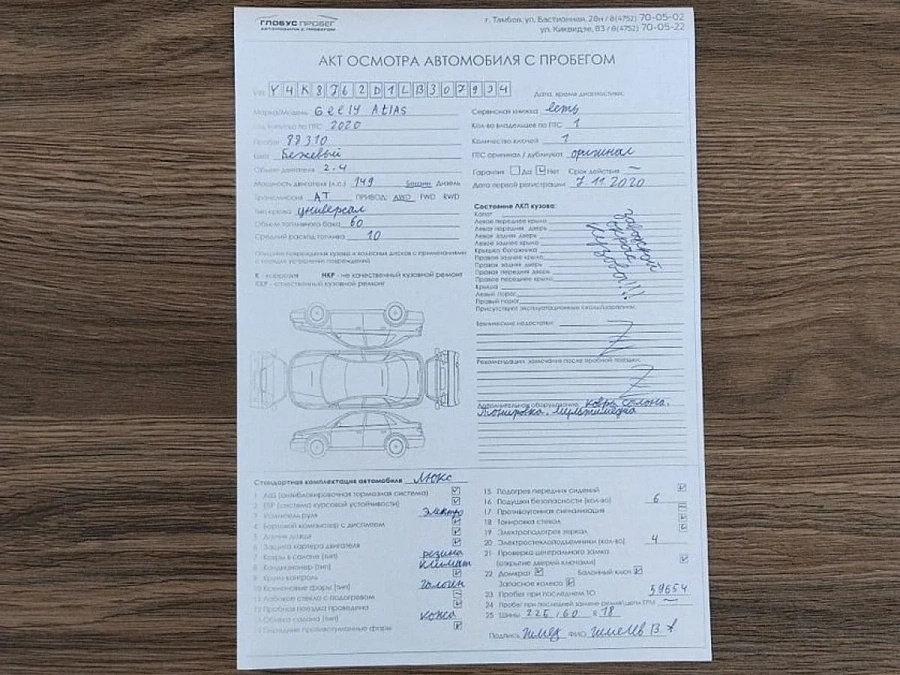 ГЛОБУС ПРОБЕГ
АВТОМОБИЛИ С ПРОБЕГОМ
г. Тамбов, ул. Бастионная, 28н / 8(4752) 70-05-02
ул. Киквидзе, 83 / 8(4752) 70-05-22
АКТ ОСМОТРА АВТОМОБИЛЯ С ПРОБЕГОМ
VIN Y4K8762D1LB307934
Дата, время диагностики:
Марка/Модель Geely Atlas
Год выпуска по ПТС 2020
Пробег 88310
Цвет Бежевый
Объем двигателя 2.4
Мощность двигателя (л.с.) 149 Бензин Дизель
Трансмиссия АТ ПРИВОД: AWD FWD RWD
Тип кузова универсал
Объем топливного бака 60
Средний расход топлива 10
Сервисная книжка есть
Кол-во владельцев по ПТС 1
Количество ключей 1
ПТС оригинал / дубликат оригинал
Гарантия Да Нет Срок действия —
Дата первой регистрации 7.11.2020
К - коррозия НКР - не качественный кузовной ремонт
ККР - качественный кузовной ремонт
Состояние ЛКП кузова:
Капот
Левое переднее крыло
Левая передняя дверь
Левая задняя дверь
Левое заднее крыло
Крышка багажника
Правое заднее крыло
Правая задняя дверь
Правая передняя дверь
Правое переднее крыло
Крыша
Левый порог
Правый порог
заводской окрас кузова!!!
Присутствуют эксплуатационные сколы/царапины.
Технические недостатки:
Z
Рекомендации, замечания после пробной поездки:
Z
Дополнительное оборудование: ковры салона,
тонировка, мультимедиа
Стандартная комплектация автомобиля Люкс
1 ABS (антиблокировочная тормозная система)
2 ESP (система курсовой устойчивости)
3 Усилитель руля электро
4 Бортовой компьютер с дисплеем
5 Датчик дождя
6 Защита картера двигателя
7 Ковры в салоне (тип) резина
8 Кондиционер (тип) климат
9 Круиз-контроль
10 Ксеноновые фары (тип) галоген
11 Лобовое стекло с подогревом
12 Пробная поездка проведена
13 Обивка салона (тип) кожа
14 Передние противотуманные фары
15 Подогрев передних сидений
16 Подушки безопасности (кол-во) 6
17 Противоугонная сигнализация
18 Тонировка стекол
19 Электроподогрев зеркал
20 Электростеклоподъемники (кол-во) 4
21 Проверка центрального замка
(открытие дверей ключами)
22 Домкрат Балонный ключ
Запасное колесо
23 Пробег при последнем ТО 59654
24 Пробег при последней замене ремня/цепи ГРМ —
25 Шины 225 / 60 R 18
Подпись ФИО